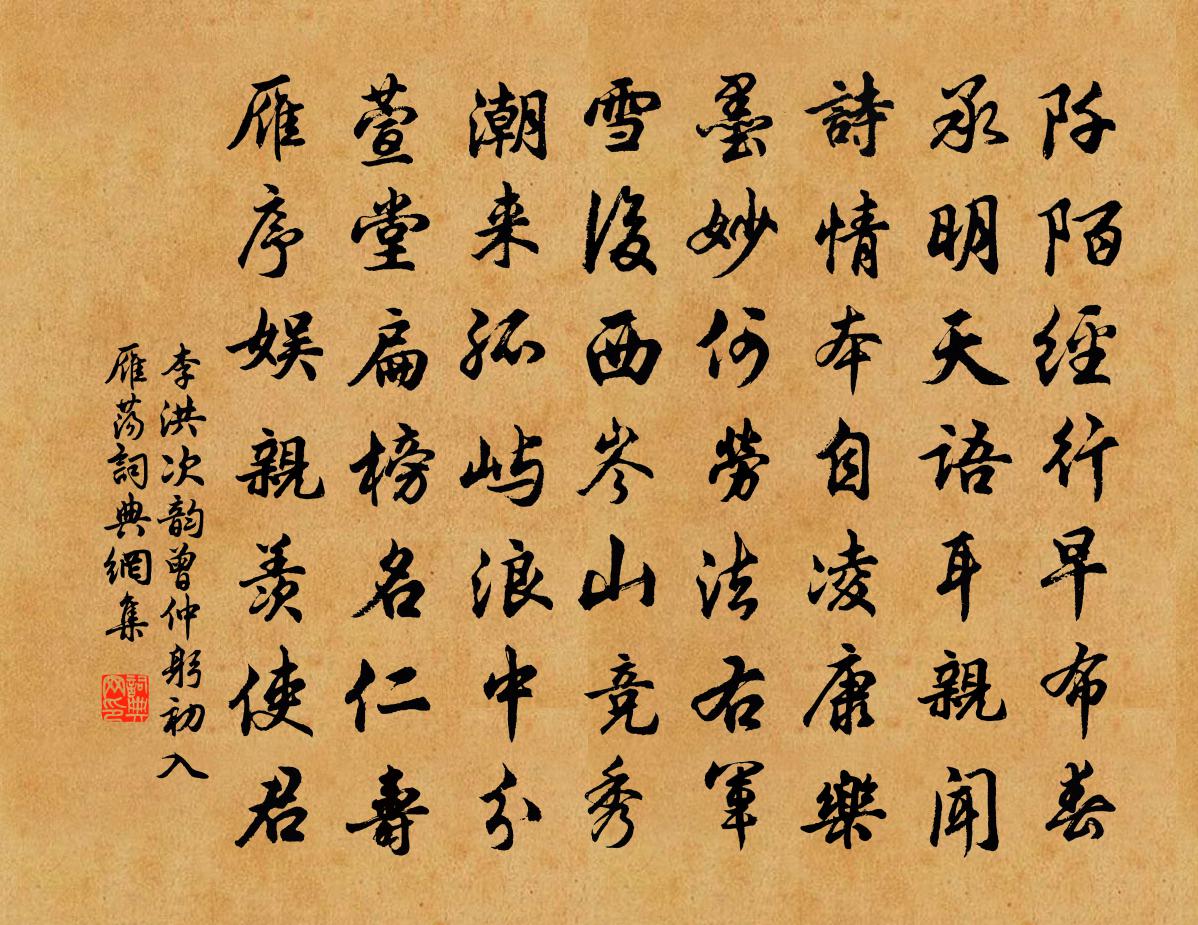 阡陌經行早布春
承明天語耳親聞
詩情本自凌康樂
墨妙何勞法右軍
雪後西岑山竞秀
潮来孤屿浪中分
萱堂扁榜名仁壽
雁序娱親羨使君
李洪次韵曾仲躬初入
雁荡詞典網集
詞典网印